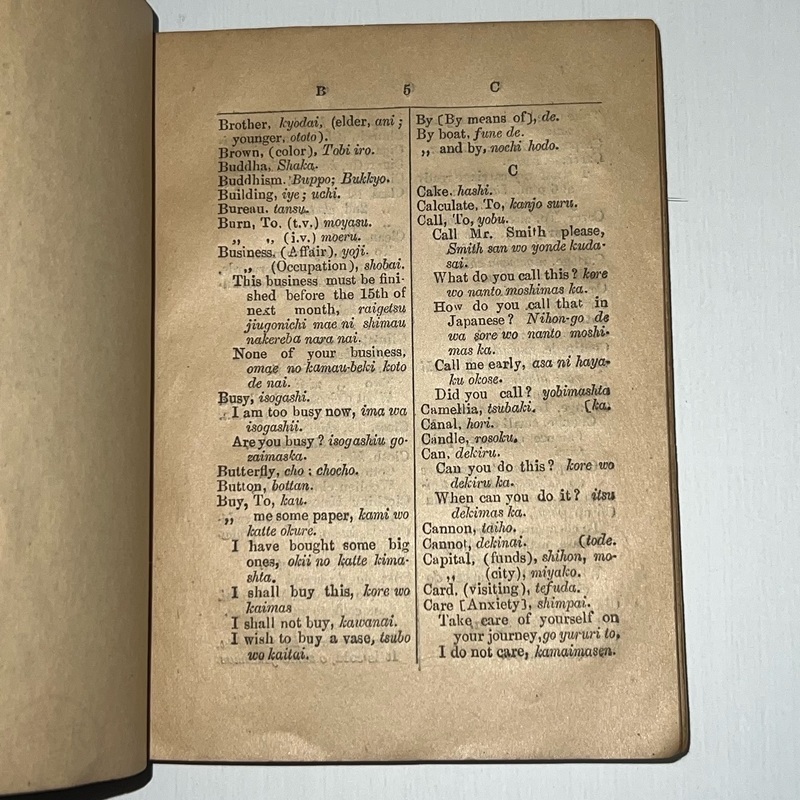 B 5 C
Brother, kyodai, (elder, ani;
younger, ototo).
Brown, (color), Tobi iro.
Buddha, Shaka.
Buddhism. Buppo; Bukkyo.
Building, iye; uchi.
Bureau. tansu.
Burn, To. (t.v.) moyasu.
„ „ (i.v.) moeru.
Business. (Affair), yoji.
„ (Occupation), shobai.
This business must be fini-
shed before the 15th of
next month, raigetsu
jiugonichi mae ni shimau
nakereba nara nai.
None of your business,
omae no kamau-beki koto
de nai.
Busy, isogashi.
I am too busy now, ima wa
isogashii.
Are you busy? isogashiu go-
zaimaska.
Butterfly, cho; chocho.
Button, bottan.
Buy, To, kau.
„ me some paper, kami wo
katte okure.
I have bought some big
ones, okii no katte kima-
shta.
I shall buy this, kore wo
kaimas
I shall not buy, kawanai.
I wish to buy a vase, tsubo
wo kaitai.
By [By means of], de.
By boat, fune de.
„ and by, nochi hodo.
C
Cake. hashi.
Calculate, To, kanjo suru.
Call, To, yobu.
Call Mr. Smith please,
Smith san wo yonde kuda-
sai.
What do you call this? kore
wo nanto moshimas ka.
How do you call that in
Japanese? Nihon-go de
wa sore wo nanto moshi-
mas ka.
Call me early, asa ni haya-
ku okose.
Did you call? yobimashta
Camellia, tsubaki. (ka.
Canal, hori.
Candle, rosoku.
Can, dekiru.
Can you do this? kore wo
dekiru ka.
When can you do it? itsu
dekimas ka.
Cannon, taiho.
Cannot, dekinai. (tode.
Capital, (funds), shihon, mo-
„ (city), miyako.
Card, (visiting), tefuda.
Care [Anxiety], shimpai.
Take care of yourself on
your journey, go yururi to.
I do not care, kamaimasen.